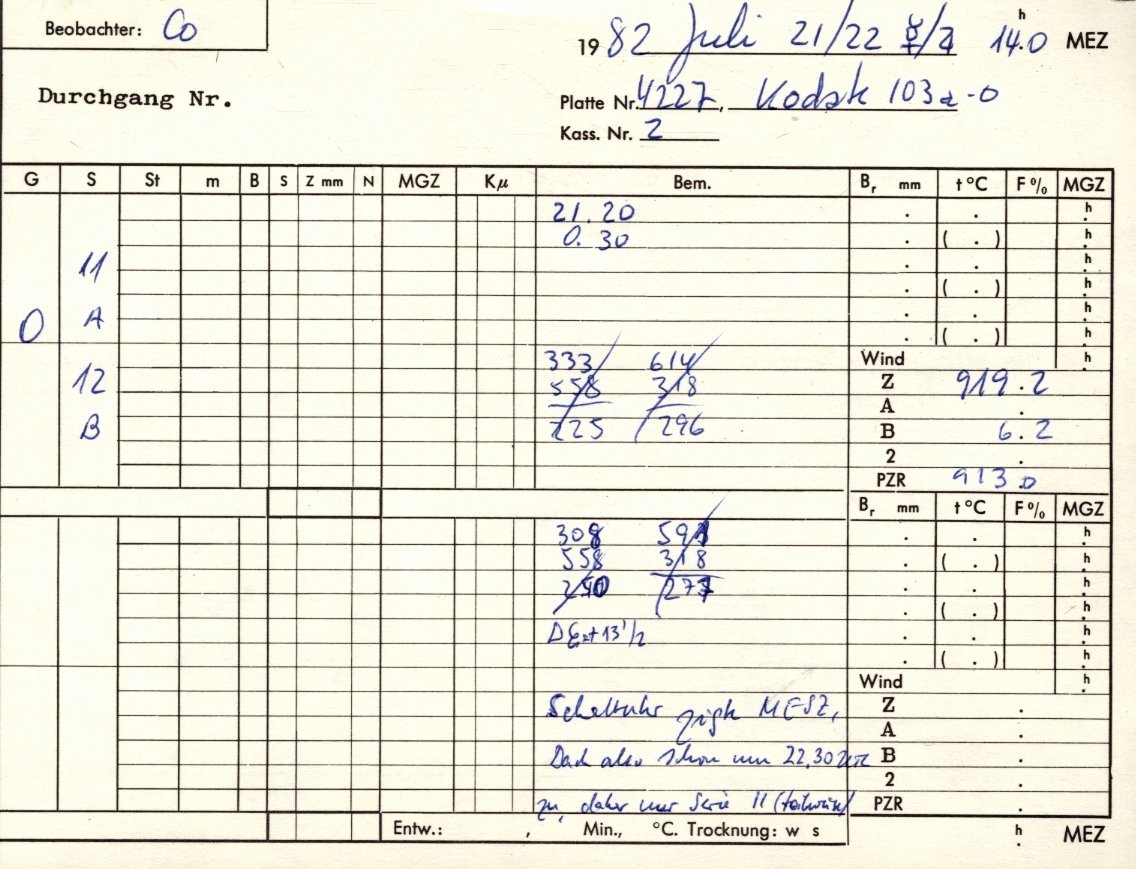 Beobachter: Co
19 82 Juli 21/22 ☿/♃ 14.0 h MEZ
Durchgang Nr.
Platte Nr. 4227, Kodak 103a-O
Kass. Nr. 2
G S St m B S Z mm N MGZ Kμ Bem. Br mm t °C F % MGZ
21.20 . . h
0.30 . ( . ) h
11 . . h
. ( . ) h
O A . . h
. ( . ) h
333 614 Wind h
12 558 318 Z 919.2
A .
B 225 296 B 6.2
2 .
PZR 913.0
Br mm t °C F % MGZ
308 591 . . h
558 318 . ( . ) h
250 277 . . h
. ( . ) h
+13'/2 . . h
. ( . ) h
Wind h
Schaltuhr zeigte MESZ, Z .
A .
Dach also schon um 22.30 B .
2 .
zu, daher nur Serie 11 (teilweise) PZR .
Entw.: , Min., °C. Trocknung: w s h MEZ